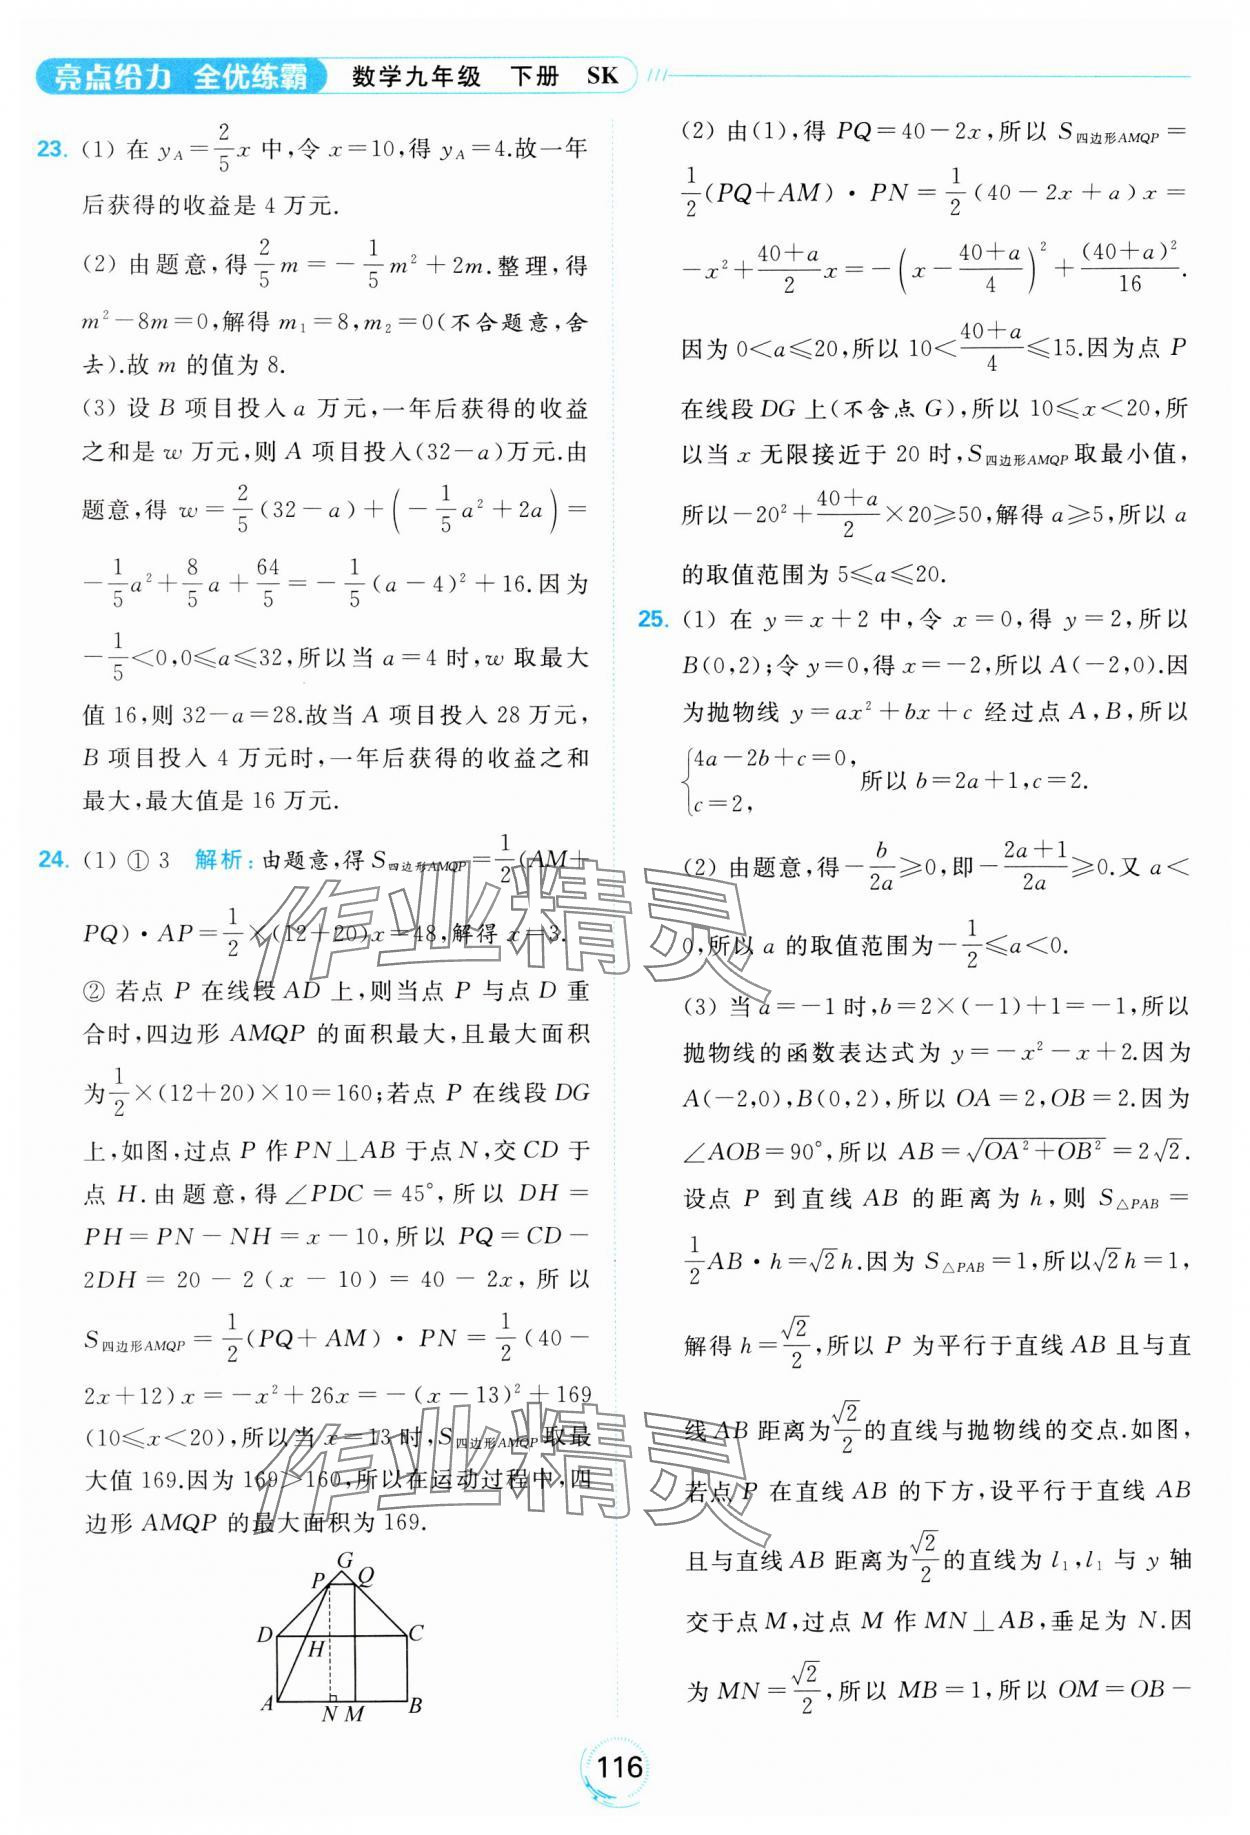 亮点给力 全优练霸 数学九年级 下册 SK
23. (1) 在 y_A=2/5x 中,令 x=10,得 y_A=4.故一年
后获得的收益是 4 万元.
(2) 由题意,得2/5m=-1/5m²+2m.整理,得
m²-8m=0,解得 m₁=8,m₂=0(不合题意,舍
去).故 m 的值为 8.
(3) 设 B 项目投入 a 万元,一年后获得的收益
之和是 w 万元,则 A 项目投入(32-a)万元.由
题意,得 w=2/5(32-a)+(-1/5a²+2a)=
-1/5a²+8/5a+64/5=-1/5(a-4)²+16.因为
-1/5<0,0≤a≤32,所以当 a=4 时,w 取最大
值 16,则 32-a=28.故当 A 项目投入 28 万元,
B 项目投入 4 万元时,一年后获得的收益之和
最大,最大值是 16 万元.
24. (1) ① 3 解析:由题意,得 S四边形AMQP=1/2(AM+
PQ)·AP=1/2×(12+20)x=48,解得 x=3.
② 若点 P 在线段 AD 上,则当点 P 与点 D 重
合时,四边形 AMQP 的面积最大,且最大面积
为1/2×(12+20)×10=160;若点 P 在线段 DG
上,如图,过点 P 作 PN⊥AB 于点 N,交 CD 于
点 H.由题意,得∠PDC=45°,所以 DH=
PH=PN-NH=x-10,所以 PQ=CD-
2DH=20-2(x-10)=40-2x,所以
S四边形AMQP=1/2(PQ+AM)·PN=1/2(40-
2x+12)x=-x²+26x=-(x-13)²+169
(10≤x<20),所以当 x=13 时,S四边形AMQP取最
大值 169.因为 169>160,所以在运动过程中,四
边形 AMQP 的最大面积为 169.
G
P Q
D H C
A N M B
(2) 由(1),得 PQ=40-2x,所以 S四边形AMQP=
1/2(PQ+AM)·PN=1/2(40-2x+a)x=
-x²+(40+a)/2x=-(x-(40+a)/4)²+(40+a)²/16.
因为 0<a≤20,所以 10<(40+a)/4≤15.因为点 P
在线段 DG 上(不含点 G),所以 10≤x<20,所
以当 x 无限接近于 20 时,S四边形AMQP取最小值,
所以-20²+(40+a)/2×20≥50,解得 a≥5,所以 a
的取值范围为 5≤a≤20.
25. (1) 在 y=x+2 中,令 x=0,得 y=2,所以
B(0,2);令 y=0,得 x=-2,所以 A(-2,0).因
为抛物线 y=ax²+bx+c 经过点 A,B,所以
{4a-2b+c=0,
c=2, 所以 b=2a+1,c=2.
(2) 由题意,得-b/2a≥0,即-(2a+1)/2a≥0.又 a<
0,所以 a 的取值范围为-1/2≤a<0.
(3) 当 a=-1 时,b=2×(-1)+1=-1,所以
抛物线的函数表达式为 y=-x²-x+2.因为
A(-2,0),B(0,2),所以 OA=2,OB=2.因为
∠AOB=90°,所以 AB=√(OA²+OB²)=2√2.
设点 P 到直线 AB 的距离为 h,则 S△PAB=
1/2AB·h=√2h.因为 S△PAB=1,所以√2h=1,
解得 h=√2/2,所以 P 为平行于直线 AB 且与直
线 AB 距离为√2/2的直线与抛物线的交点.如图,
若点 P 在直线 AB 的下方,设平行于直线 AB
且与直线 AB 距离为√2/2的直线为 l₁,l₁ 与 y 轴
交于点 M,过点 M 作 MN⊥AB,垂足为 N.因
为 MN=√2/2,所以 MB=1,所以 OM=OB-
116
作业精灵
作业精灵